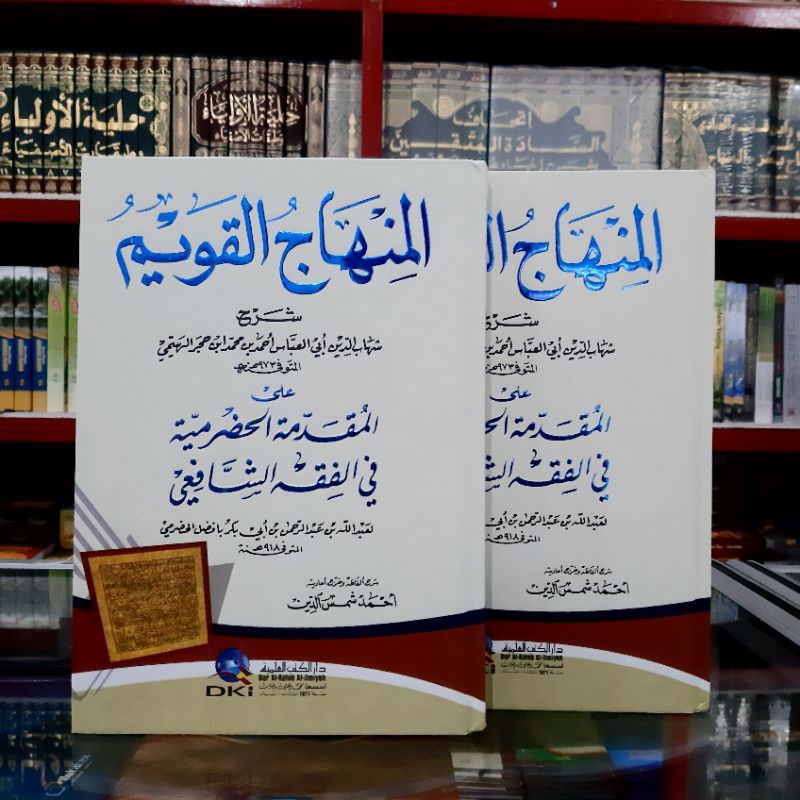 حلية الأولياء
حلية الأولياء
إتحاف
السادة المتقين
المِنْهَاجُ القَوِيمُ
شرح
شهاب الدين أبي العباس أحمد بن محمد ابن حجر الهيتمي
المتوفى ٩٧٣ هـ
على
المقدمة الحضرمية
في الفقه الشافعي
لعبد الله بن عبد الرحمن بن أبي بكر بافضل الحضرمي
المتوفى ٩١٨ هـ سنة
أحمد شمس الدين
دار الكتب العلمية
Dar Al-Kotob Al-ilmiyah
DKi
المِنْهَاجُ
شرح
شهاب الدين أبي العباس أحمد بن
المتوفى ٩٧٣ هـ
على
المقدمة
في الفقه
لعبد الله بن عبد الرحمن بن أبي
المتوفى ٩١٨ هـ سنة
أحمد شمس الدين
دار الكتب العلمية
Dar Al-Kotob Al-ilmiyah